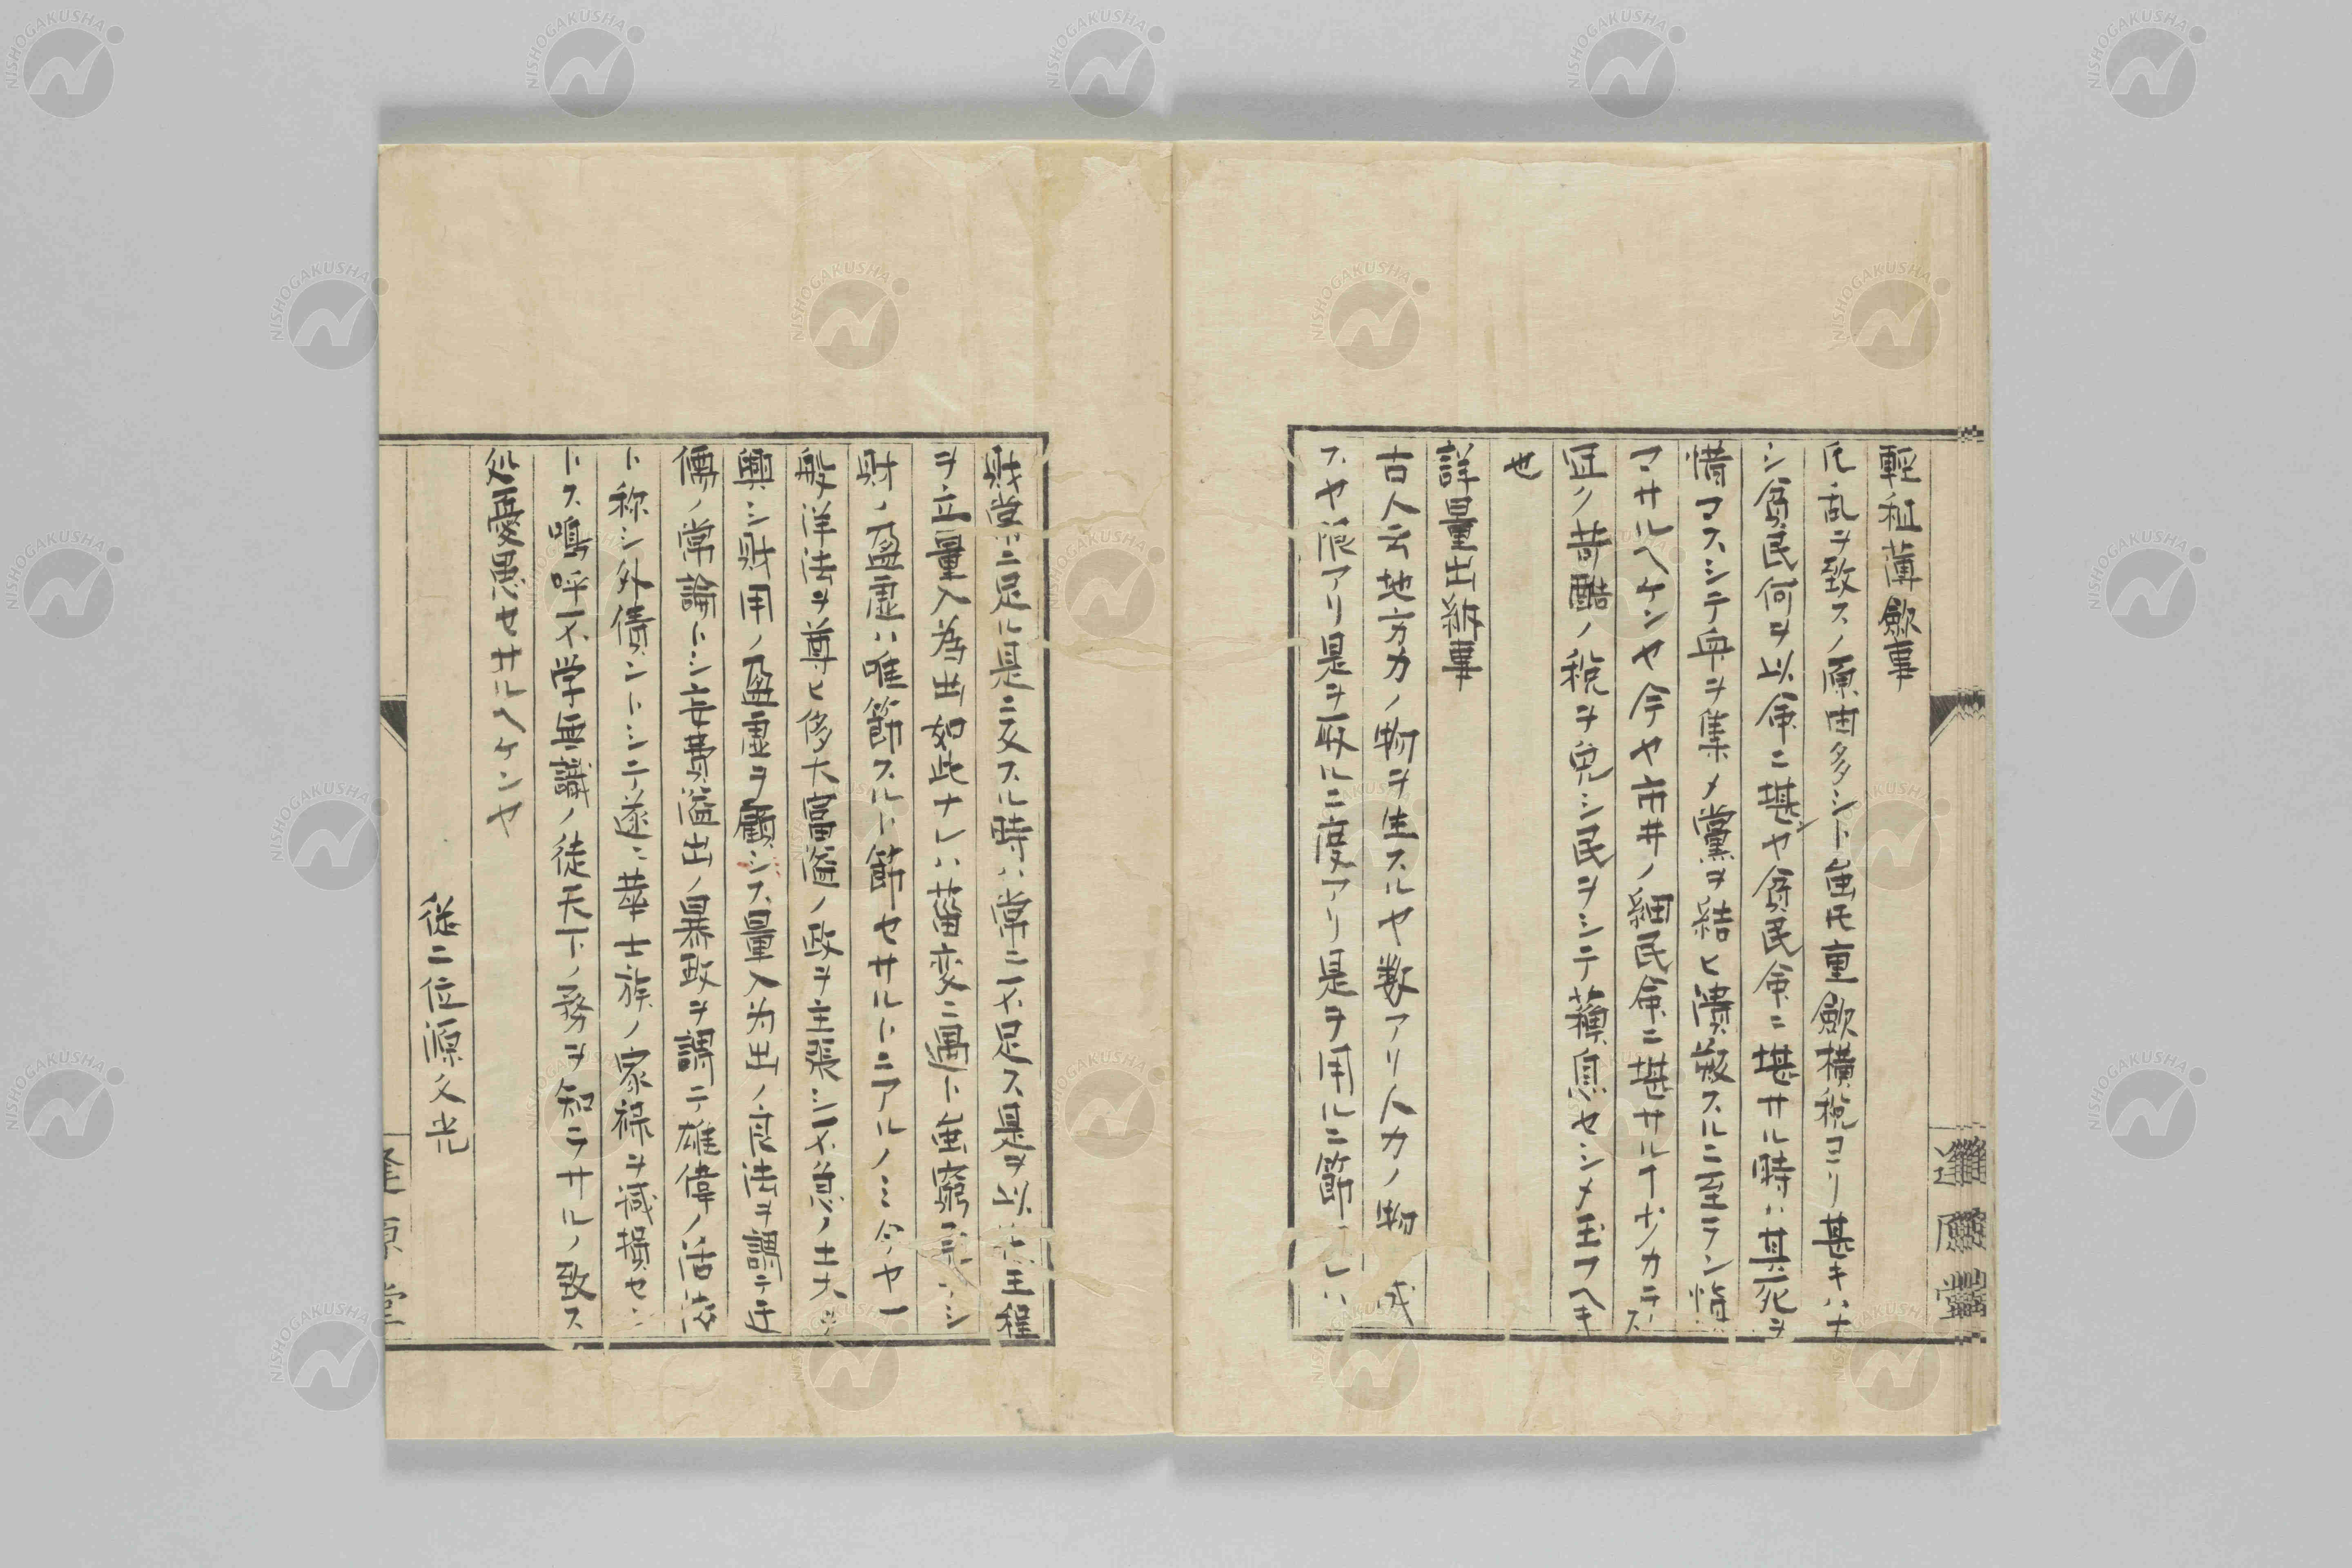 輕租薄歛事
凡乱ヲ致スノ原因多シト雖モ重歛橫税ヨリ甚キハナ
シ貧民何ヲ以命ニ堪ヤ貧民命ニ堪サル時ハ其死ヲ
惜マスシテ舟ヲ集メ黨ヲ結ヒ潰散スルニ至ラン慎
マサルヘケンヤ今ヤ市井ノ細民命ニ堪サル十少カラス
宜ク苛酷ノ税ヲ免シ民ヲシテ蘓息セシメ玉フヘキ
也
詳量出納事
古人云地方カノ物ヲ生スルヤ数アリ人力ノ物 成
スヤ限アリ是ヲ取ルニ度アリ是ヲ用ルニ節 レハ
財常ニ足ル是ニ反スル時ハ常ニ不足ス是ヲ以 王程
ヲ立量入為出如此ナレハ菑変ニ遇ト雖窮 シ
財ノ盈虚ハ唯節スルト節セサルトニアルノミ今ヤ一
般洋法ヲ尊ヒ侈大富溢ノ政ヲ主張シ不急ノ土木ヲ
興シ財用ノ盈虚ヲ顧ミス量入為出ノ良法ヲ謂テ迂
儒ノ常論トシ妄費溢出ノ暴政ヲ謂テ雄偉ノ活法
ト称シ外債ントシテ遂ニ華士族ノ家禄ヲ減損セン
トス嗚呼不学無識ノ徒天下ノ務ヲ知ラサルノ致ス
処憂愚セサルヘケンヤ
従二位源久光
逢原堂